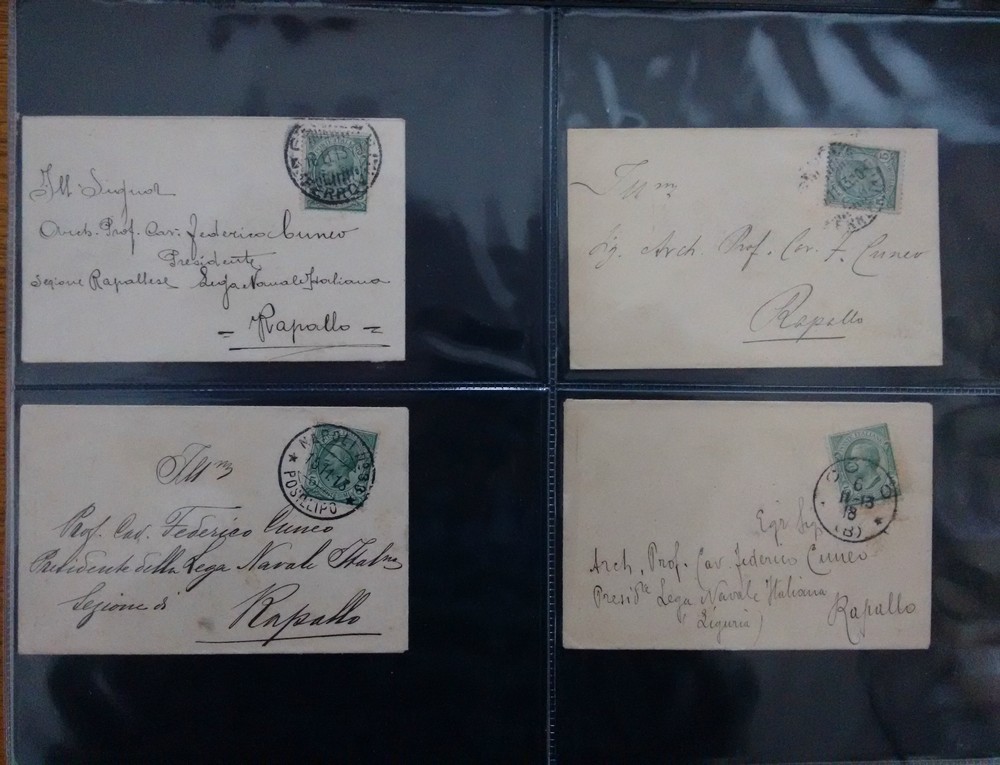 Ill Signor
Arch. Prof. Cav. Federico Cuneo
Presidente
Sezione Rapallese Lega Navale Italiana
Rapallo
Ill mo
Sig. Arch. Prof. Cav. F. Cuneo
Rapallo
Ill mo
Prof. Cav. Federico Cuneo
Presidente della Lega Navale Italna
Sezione di
Rapallo
NAPOLI
POSILLIPO
Egr Sig
Arch. Prof. Cav. Federico Cuneo
Preside Lega Navale Italiana
(Liguria)
Rapallo
6
11-13
18
(B)